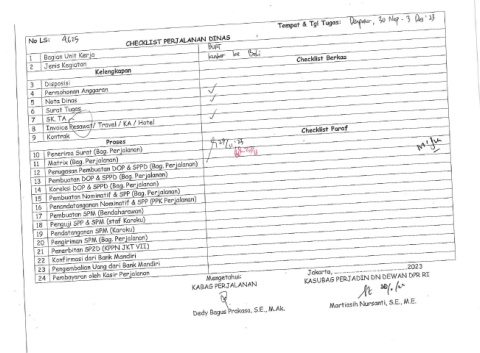 Tempat & Tgl Tugas: Denpasar, 30 Nop - 3 Des '23
No LS: 9625
CHECKLIST PERJALANAN DINAS
1 Bagian Unit Kerja
2 Jenis Kegiatan
Kelengkapan Checklist Berkas
3 Disposisi
4 Permohonan Anggaran
5 Nota Dinas
6 Surat Tugas
7 SK. TA
8 Invoice Pesawat / Travel / KA / Hotel
9 Kontrak
Proses Checklist Paraf
10 Penerima Surat (Bag. Perjalanan)
11 Matrix (Bag. Perjalanan)
12 Penugasan Pembuatan DOP & SPPD (Bag. Perjalanan)
13 Pembuatan DOP & SPPD (Bag. Perjalanan)
14 Koreksi DOP & SPPD (Bag. Perjalanan)
15 Pembuatan Nominatif & SPP (Bag. Perjalanan)
16 Penandatanganan Nominatif & SPP (PPK Perjalanan)
17 Pembuatan SPM (Bendaharawan)
18 Penguji SPP & SPM (staf Karoku)
19 Pendatangaran SPM (Karoku)
20 Pengiriman SPM (Bag. Perjalanan)
21 Penerbitan SP2D (KPPN JKT VII)
22 Konfirmasi dari Bank Mandiri
23 Pengembalian Uang dari Bank Mandiri
24 Pembayaran oleh Kasir Perjalanan
Jakarta, 2023
Mengetahui:
KABAG PERJALANAN
KASUBAG PERJADIN DN DEWAN DPR RI
Dedy Bagus Prakasa, S.E., M.Ak.
Martiasih Nursanti, S.E., M.E.